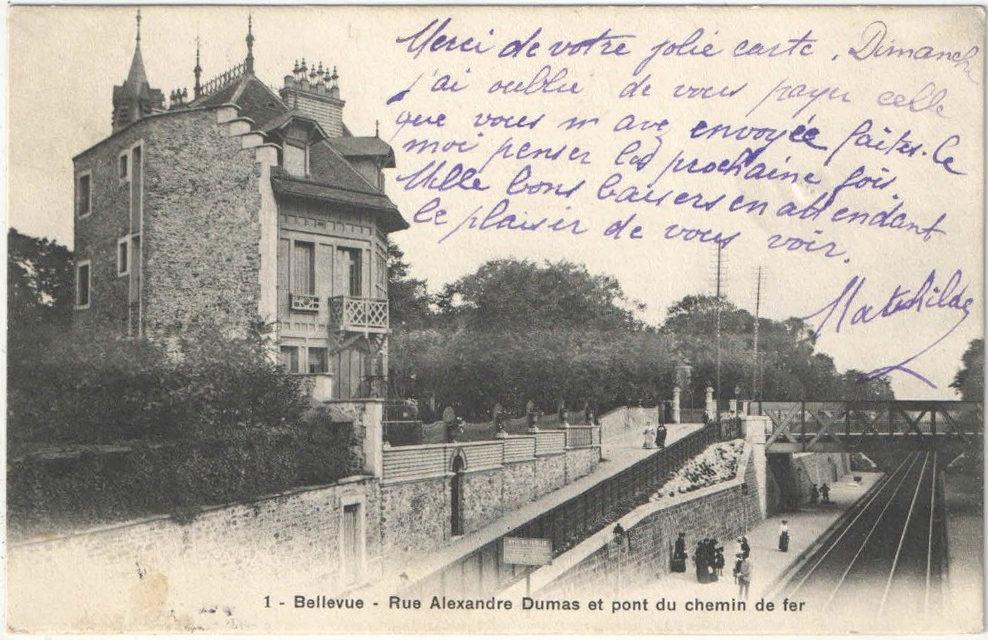 Merci de votre jolie carte, Dimanche
j'ai oublié de vous payer celle
que vous m'avez envoyée faites-le
moi penser la prochaine fois.
Mille bons baisers en attendant
le plaisir de vous voir.
Mathilde
1 - Bellevue - Rue Alexandre Dumas et pont du chemin de fer